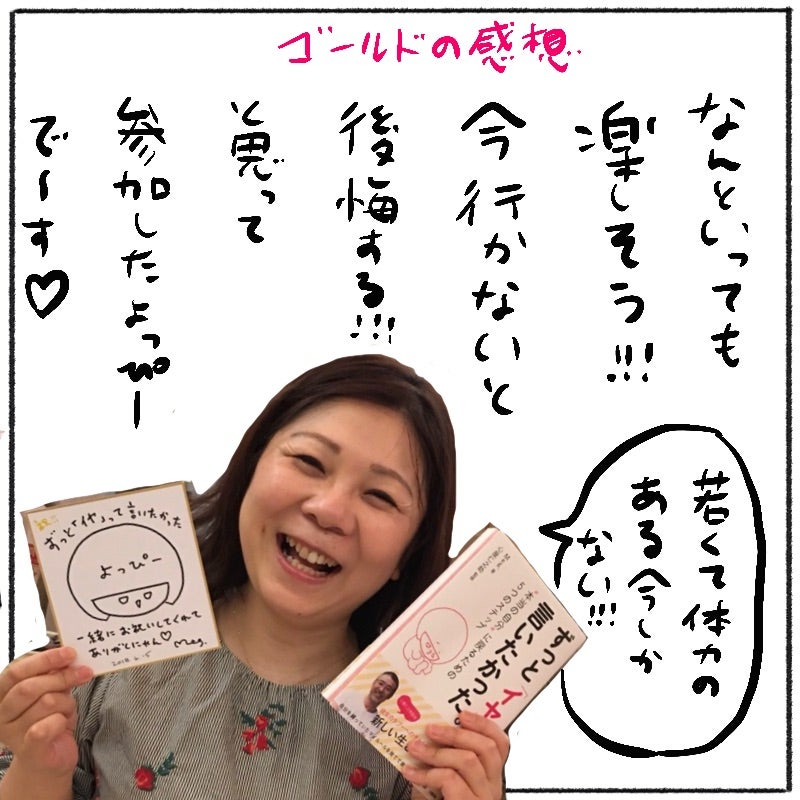 ゴールドの感想
なんといっても
楽しそう!!!
今行かないと
後悔する!!!
と思って
参加したよっぴー
でーす♡
若くて体力の
ある今しか
ない!!!
ずっと「イヤ」って言いたかった
よっぴー
一緒にお祝いしてくれて
ありがとにゃん♡ Meg.
心屋仁之助
"本当の自分"に戻るための
5つのステップ
ずっと「イヤ
言いたかった。
新しい生